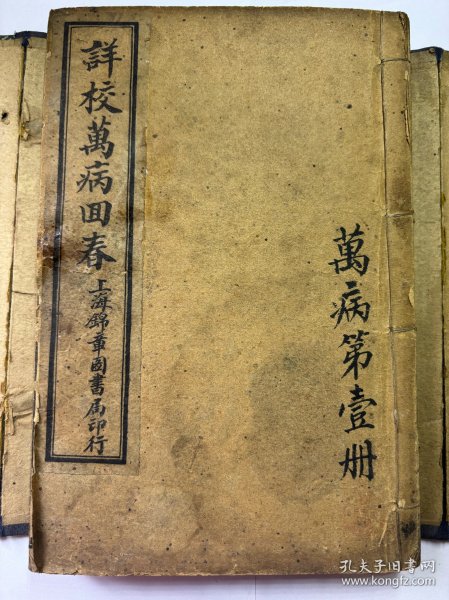 詳校萬病回春
上海錦章圖書局印行
萬病第壹册
孔夫子旧书网
www.kongfz.com